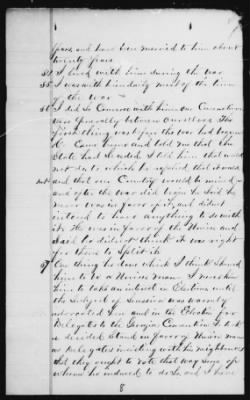 years and have been married to him about
twenty years
54 I lived with him during the war
55 I was with him daily most of the time
the war
56 I did so Converse with him Our Conversations
was Generally between Ourselves The
first thing was before the war had begun
C. Came home and told me that the
State had Seceded I told him that would
not do to which he agreed that it would
not and that our Country would be ruined
and after the war did begin he Said he
never was in favor of it, and did not
intend to have anything to do with
it. He was in favor of the Union and
Said he did not think it was right
for them to Split it
57 One thing he done which I think showed
him to be a Union man I never knew
him to take an interest in Elections until
the Subject of Secession was warmly
advocated here and in the Election for
Delegates to the Georgia Convention he took
a decided Stand in favor of Union men
as Delegates insisting with his neighbors
that they ought to vote that way some of
whom he induced to do so and I have
8